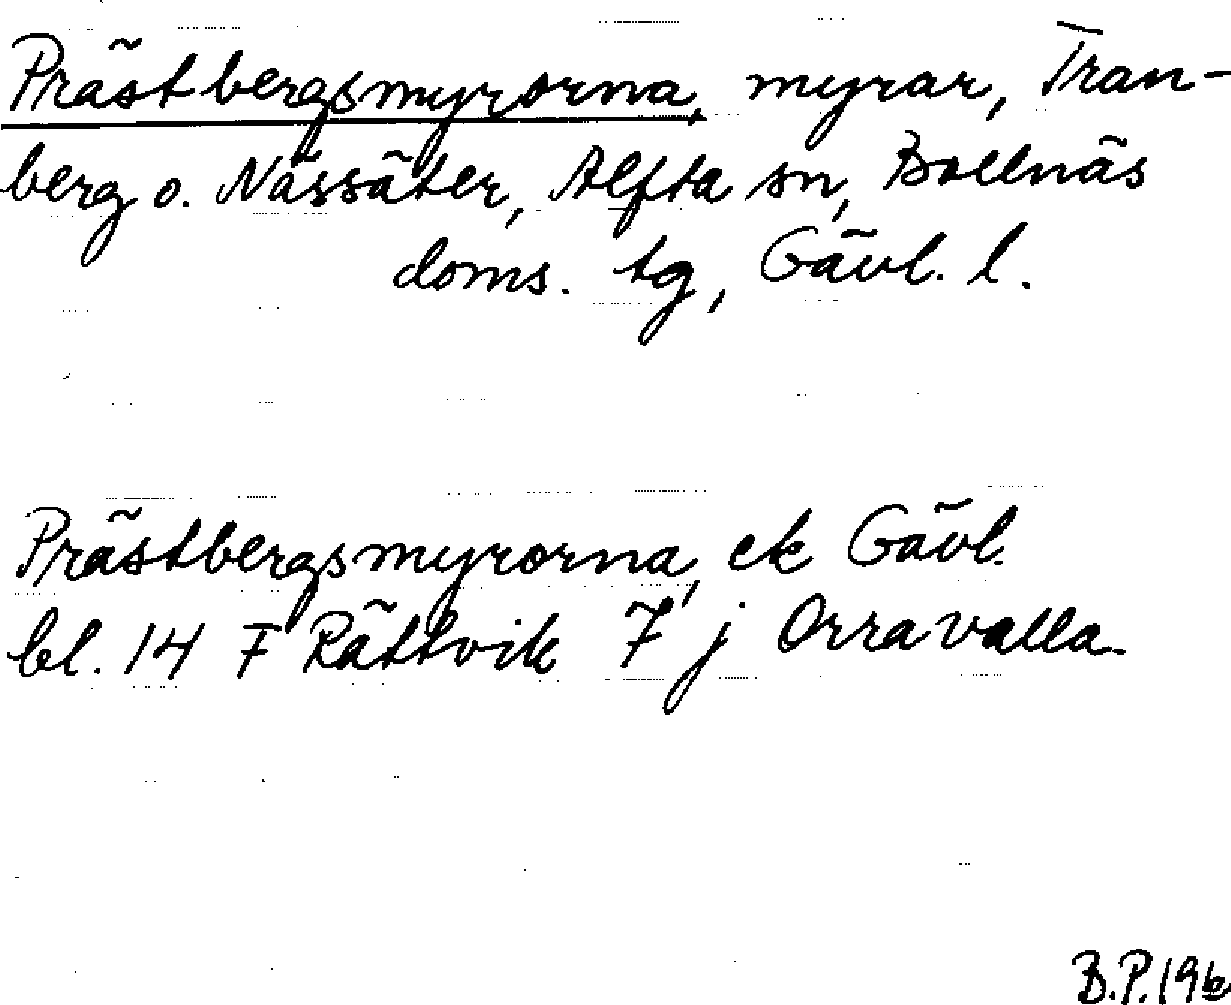 Prästbergsmyrorna, myrar, Tran-
berg o. Nässäter, Alfta sn, Bollnäs
doms. tg, Gävl. l.
Prästbergsmyrorna, ek Gävl.
bl. 14 F Rättvik 7 j Orravalla.
B.P. 196